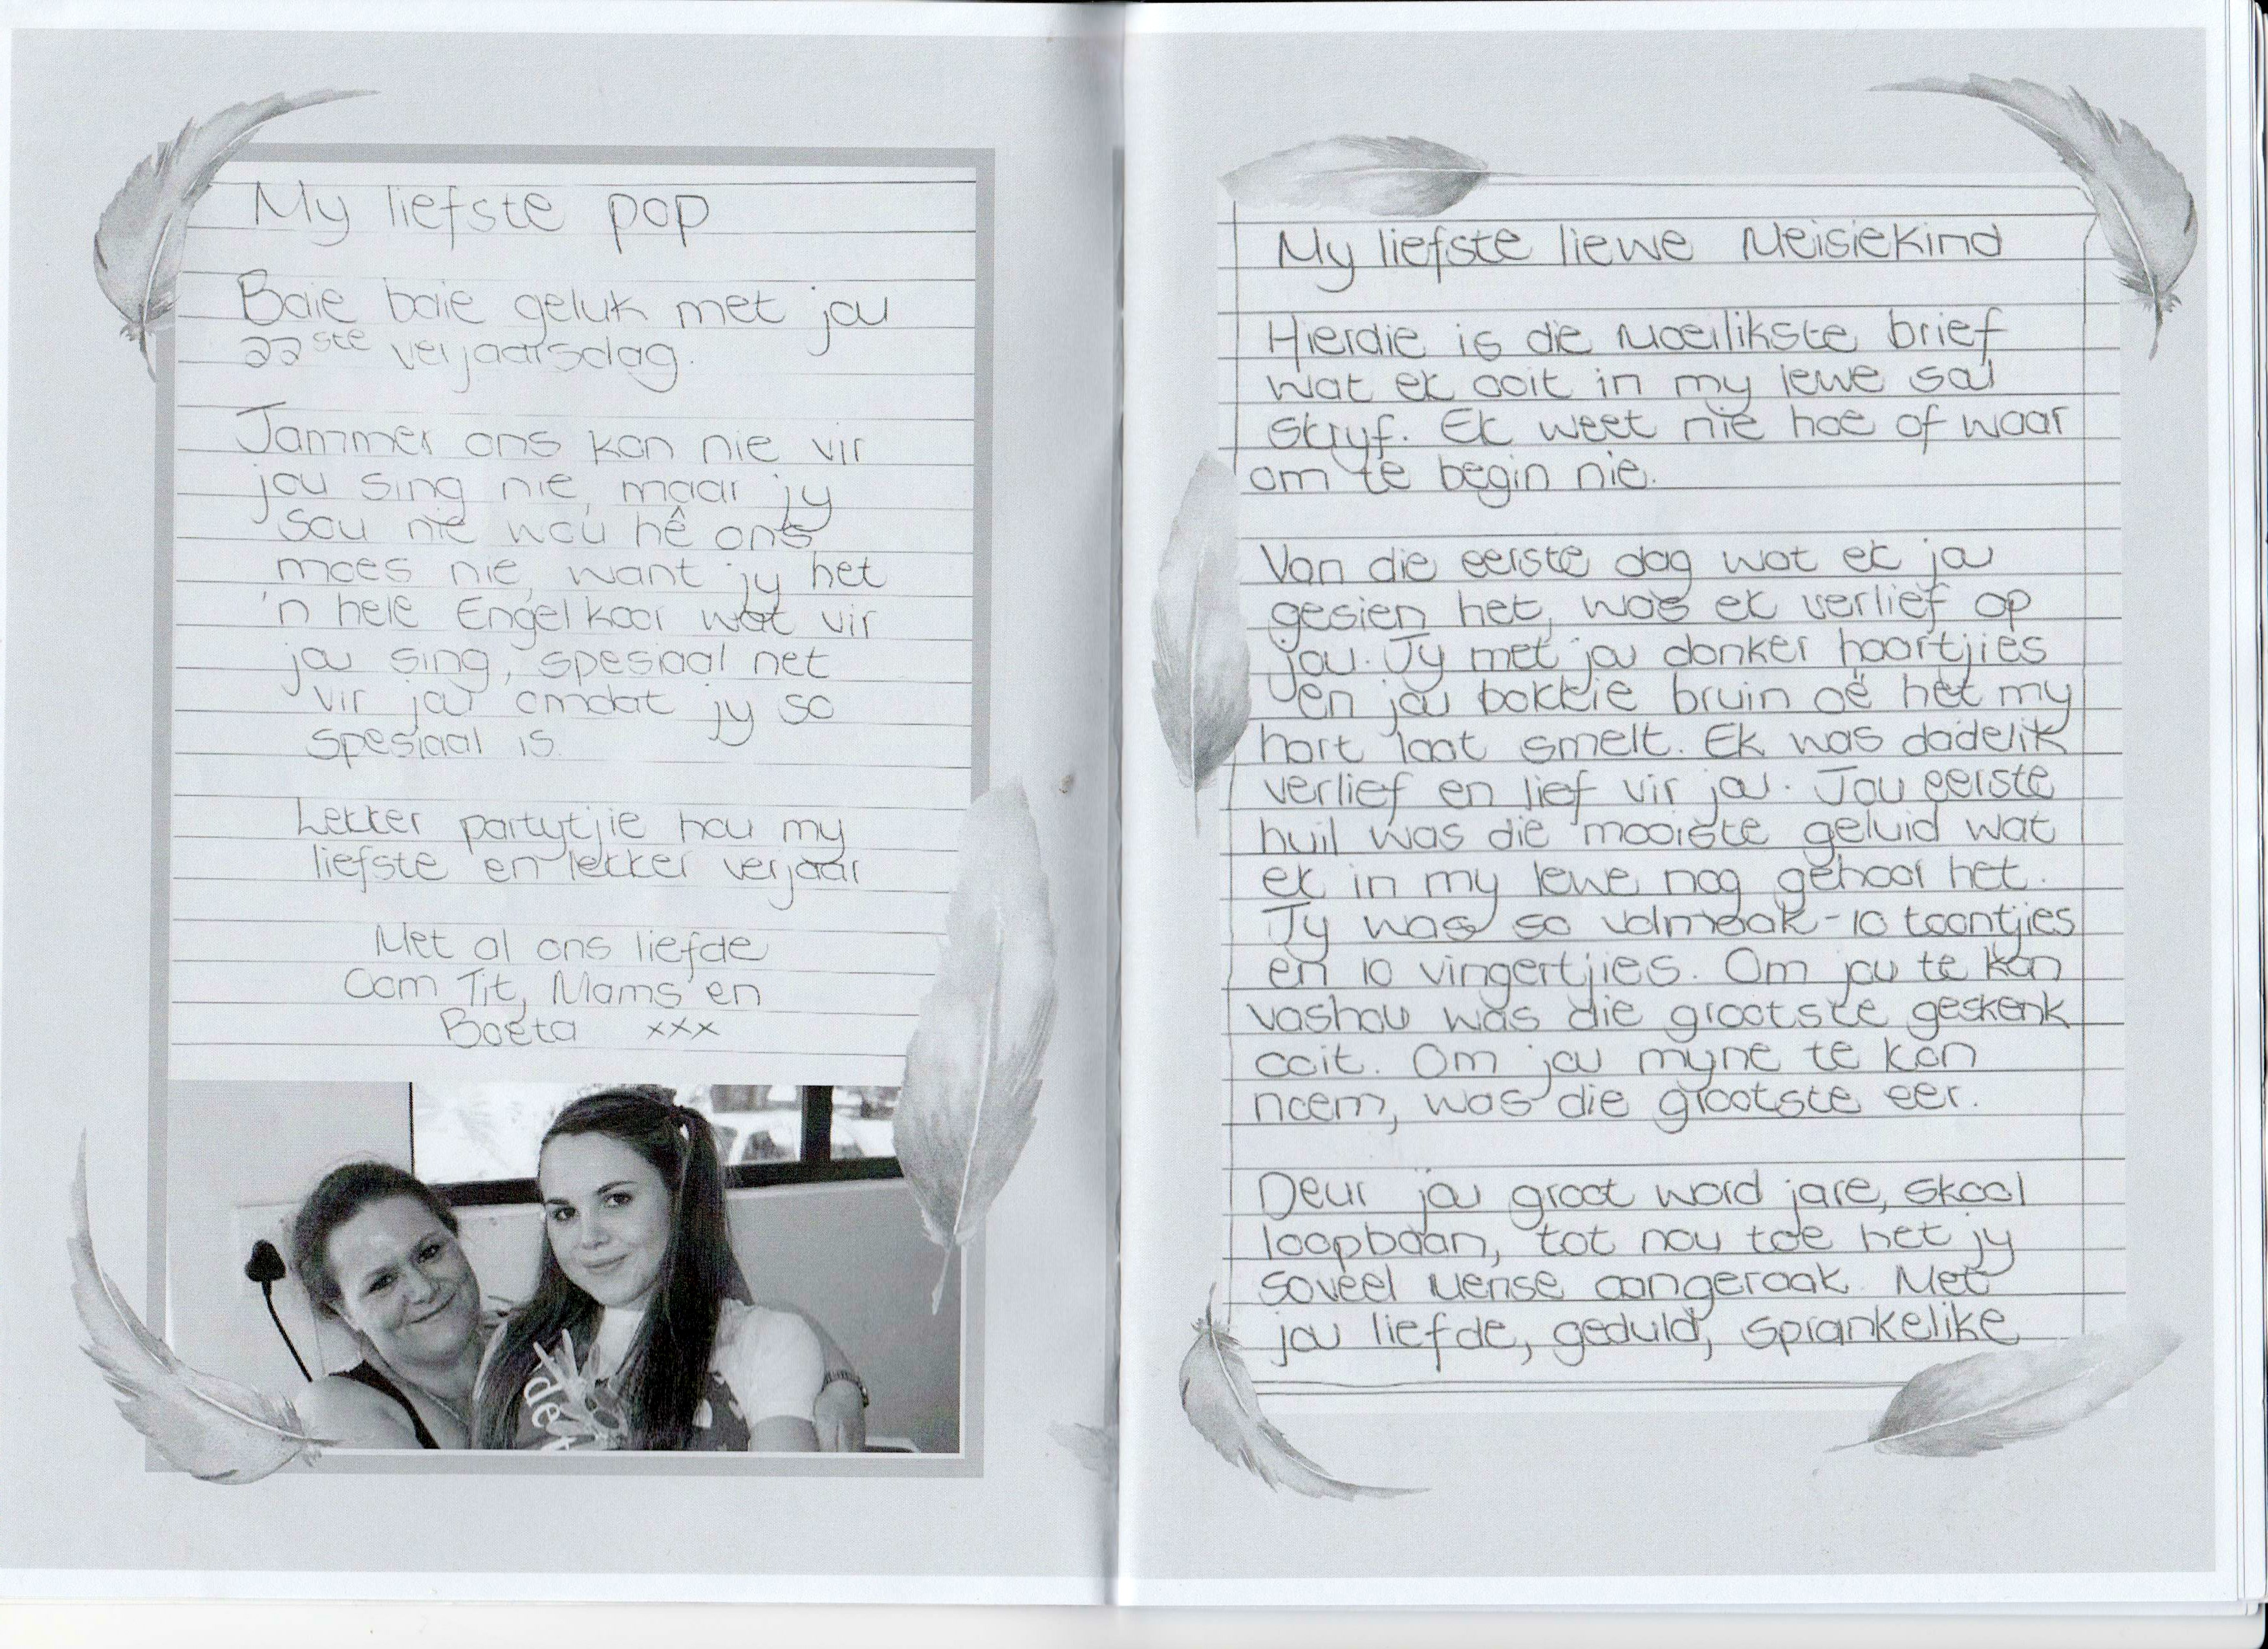 My liefste pop
Baie baie geluk met jou
22ste verjaarsdag.
Jammer ons kan nie vir
jou sing nie, maar jy
sou nie wou hê ons
moes nie, want jy het
'n hele Engelkoor wat vir
jou sing, spesiaal net
vir jou omdat jy so
spesiaal is.
Lekker partytjie hou my
liefste en lekker verjaar
Met al ons liefde
Oom Tit, Mams en
Boeta xxx
de
My liefste liewe Meisiekind
Hierdie is die moeilikste brief
wat ek ooit in my lewe sal
skryf. Ek weet nie hoe of waar
om te begin nie.
Van die eerste dag wat ek jou
gesien het, was ek verlief op
jou. Jy met jou donker haartjies
en jou bokkie bruin oë het my
hart laat smelt. Ek was dadelik
verlief en lief vir jou. Jou eerste
huil was die mooiste geluid wat
ek in my lewe nog gehoor het.
Jy was so volmaak - 10 toontjies
en 10 vingertjies. Om jou te kan
vashou was die grootste geskenk
ooit. Om jou myne te kan
noem, was die grootste eer.
Deur jou groot word jare, skool
loopbaan, tot nou toe het jy
soveel mense aangeraak. Met
jou liefde, geduld, sprankelike